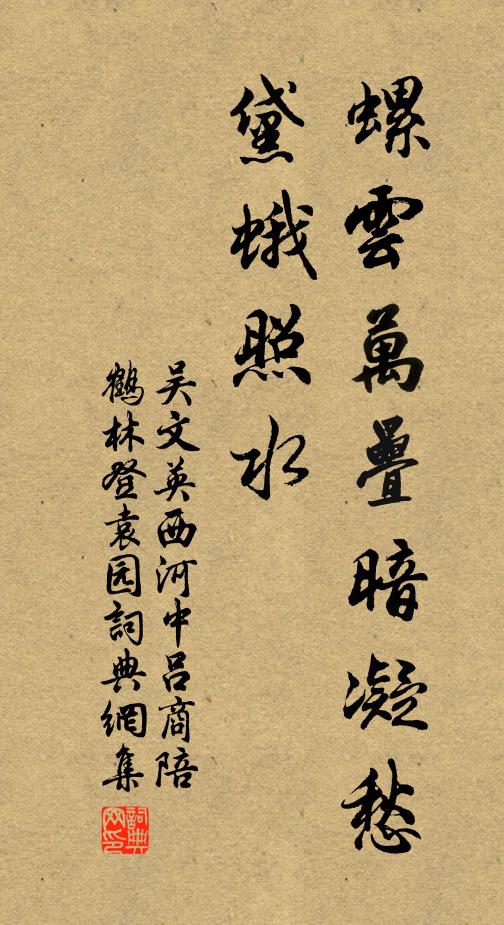 螺雲萬疊暗凝愁
黛蛾照水
吴文英西河中吕商陪
鶴林登袁园詞典網集
詞典网印